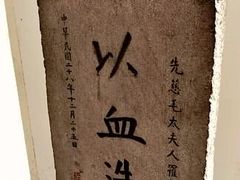 先慈毛太夫人罹
以血洗
中華民國二十八年十二月二十五日